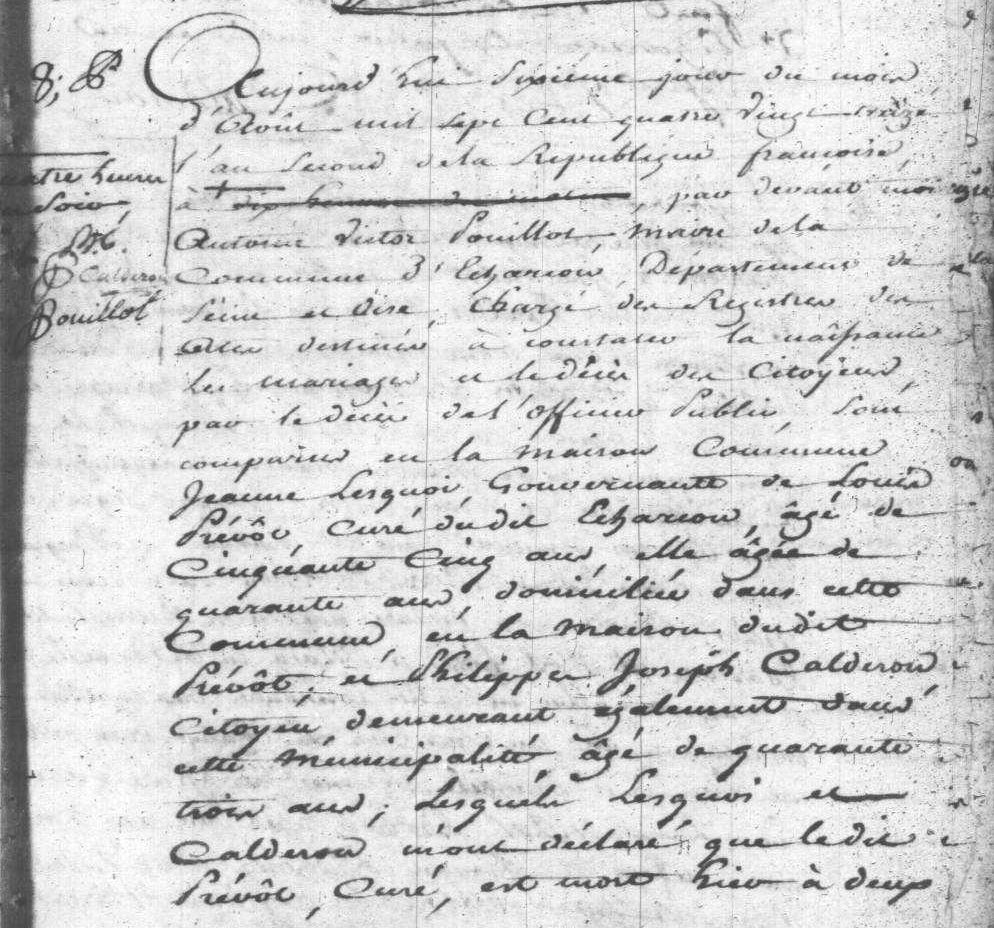 8; B
Aujourd'hui Sixiéme jour du mois
d'Août mil sept Cent quatre Vingt treize
l'an Second dela République françoise,
à + dix heures du matin, par devant moi
Antoine Victor Pouillot, maire dela
Commune d'Echarcon, Département de
Seine et Oise, Chargé des Registres des
Actes destinés à constater la naissance
Les mariages et le décès des Citoyens,
par le décès de l'officier Public Sont
comparus en la maison Commune
Jeanne Lesquoi, Gouvernante de Louis
Prévôt, Curé dudit Echarcon, âgé de
Cinquante Cinq ans, elle âgée de
quarante ans, domiciliée dans cette
Commune, en la maison dudit
Prévôt, et Philippe Joseph Calderon
Citoyen, demeurant également dans
cette municipalité âgé de quarante
trois ans; Lesquels Lesquoi et
Calderon m'ont déclaré que ledit
Prévôt, Curé, est mort hier à deux
quatre heures
Soir,
Calderon
Pouillot